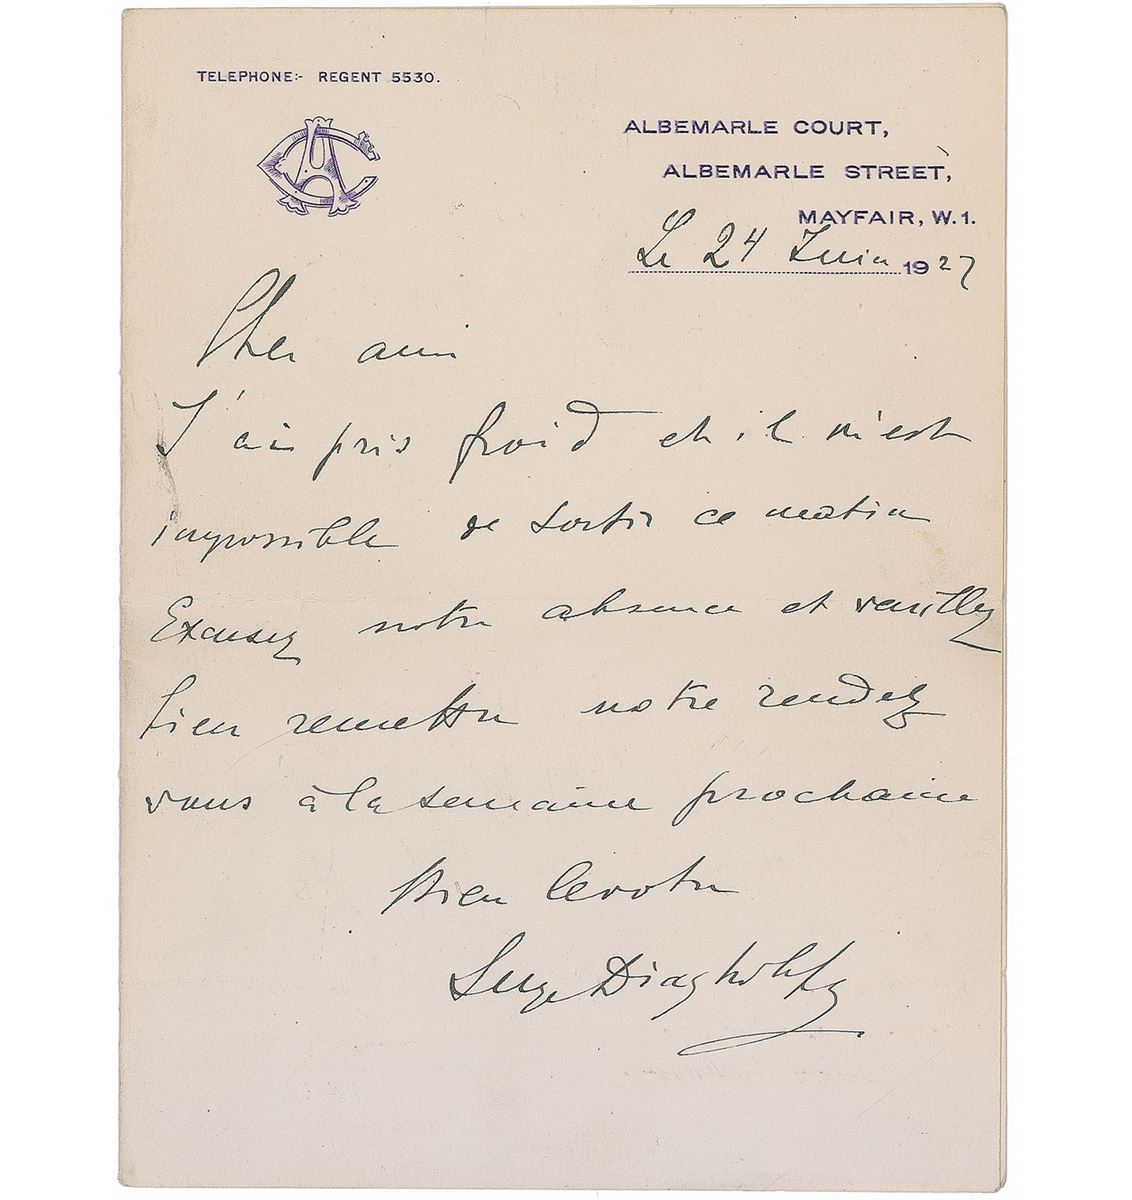 TELEPHONE:- REGENT 5530.
AC
ALBEMARLE COURT,
ALBEMARLE STREET,
MAYFAIR, W.1.
Le 24 Juin 1927
Cher ami
J'ai pris froid et il m'est
impossible de sortir ce matin
Excusez notre absence et veuillez
bien remettre notre rendez
vous à la semaine prochaine
Bien à votre
Serge Diaghileff